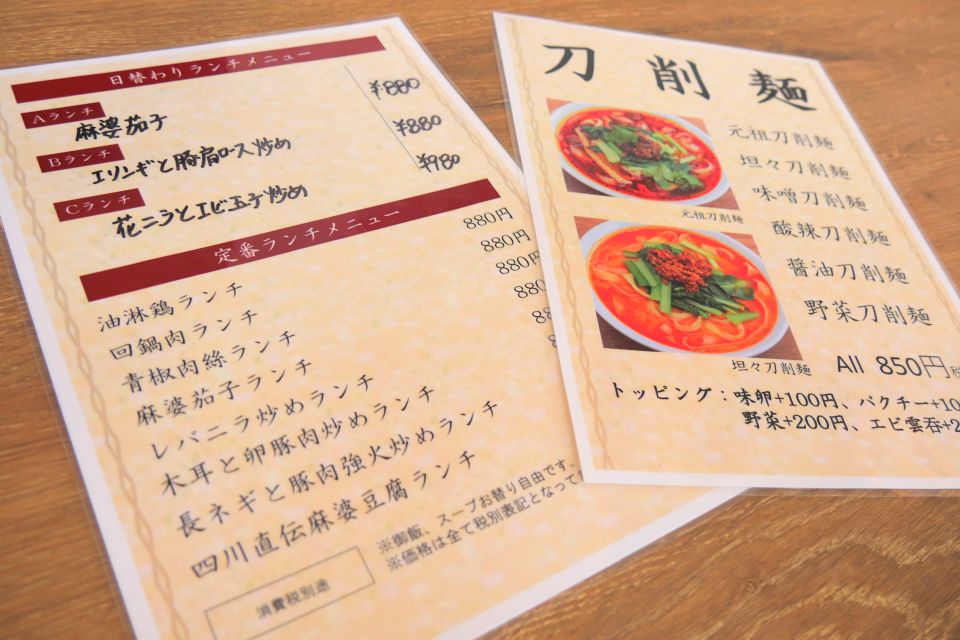 日替わりランチメニュー
Aランチ
麻婆茄子 ¥880
Bランチ
エリンギと豚肩ロース炒め ¥880
Cランチ
花ニラとエビ玉子炒め ¥980
定番ランチメニュー
油淋鶏ランチ 880円
回鍋肉ランチ 880円
青椒肉絲ランチ 880円
麻婆茄子ランチ
レバニラ炒めランチ
木耳と卵豚肉炒めランチ
長ネギと豚肉強火炒めランチ
四川直伝麻婆豆腐ランチ
※御飯、スープお替り自由です。
※価格は全て税別表記となって
消費税別途
刀削麺
元祖刀削麺
坦々刀削麺
味噌刀削麺
酸辣刀削麺
醤油刀削麺
野菜刀削麺
元祖刀削麺
坦々刀削麺
All 850円
トッピング：味卵+100円、パクチー+10
野菜+200円、エビ雲呑+2